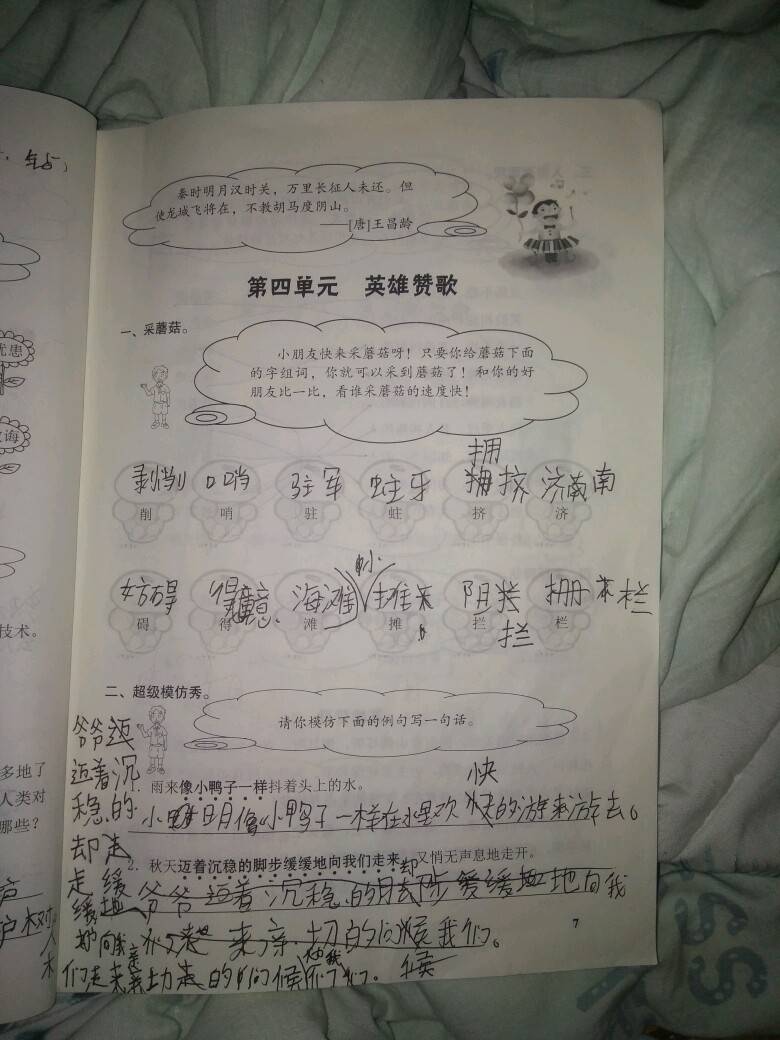 秦时明月汉时关，万里长征人未还。但
使龙城飞将在，不教胡马度阴山。
——[唐]王昌龄
第四单元 英雄赞歌
一、采蘑菇。
小朋友快来采蘑菇呀！只要你给蘑菇下面
的字组词，你就可以采到蘑菇了！和你的好
朋友比一比，看谁采蘑菇的速度快！
拥
剥削 口哨 驻军 蛀牙 拥挤 济南
削 哨 驻 蛀 挤 济
妨碍 得意 海滩 摊 阴拦 栅栏
碍 得 滩 摊 拦 栏
拦
二、超级模仿秀。
请你模仿下面的例句写一句话。
1. 雨来像小鸭子一样抖着头上的水。
快
小明像小鸭子一样在水里欢快的游来游去。
2. 秋天迈着沉稳的脚步缓缓地向我们走来，又悄无声息地走开。
却
爷爷迈着沉稳的步缓缓地向我
们走来亲切的问候我们。
候
爷爷迈
迈着沉
稳的
却走
走缓
缓地
向我
们走来亲切的问候我们。
技术。
多地了
人类对
哪些？
忧患
7